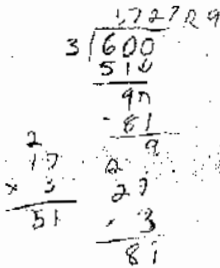 1727R9
3 600
510
90
- 81
9
2
17
× 3
51
2
27
× 3
81